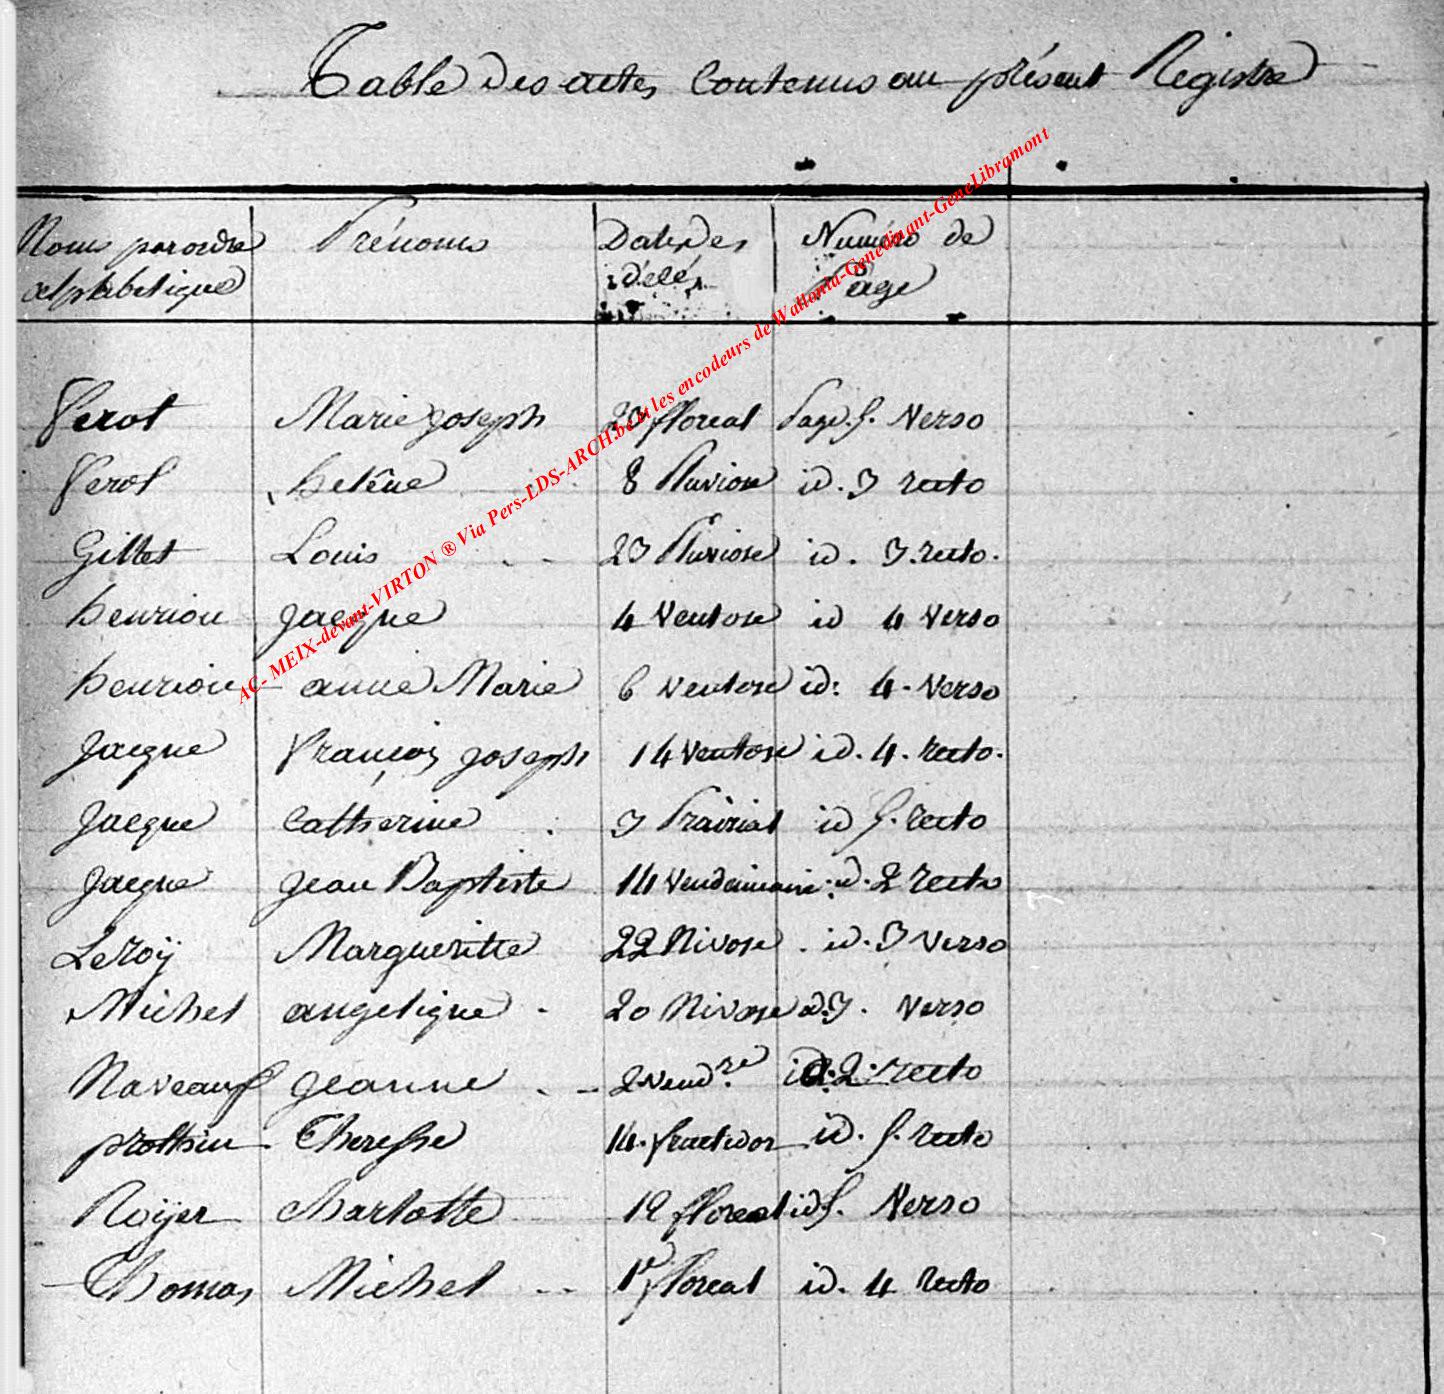 Table des actes Contenus au présent Registre
Noms par ordre alphabetique Prénoms Date des Numéro de Page
ferot Marie joseph floreal Page. 5. Verso
ferot helêne 8 Pluviose id. 3 recto
Gillet Louis 23 Pluviose id. 3. recto.
henrion jacque 4 Ventose id 4 Verso
henrion anne Marie 6 Ventose id: 4. Verso
jacque françois joseph 14 Ventose id. 4. recto.
jacque Catherine 3 Prairial id 5. recto
jacque jean Baptiste 14 Vendemiaire. id. 2 recto
Leroÿ Margueritte 22 Nivose. id. 3 Verso
Michel angelique 20 Nivose id. 3. Verso
Naveaux jeanne 2 Vend.re id. 2. recto
prothin Theresse 14. fructidor id. 5. recto
Roÿer Charlotte 19 floreal id 5. Verso
Thomas Michel 1er floreal id. 4 recto
AC- MEIX-devant-VIRTON ® Via Pers-LDS-ARCH.be et les encodeurs de Wallonia-Genedinant-GeneLibramont